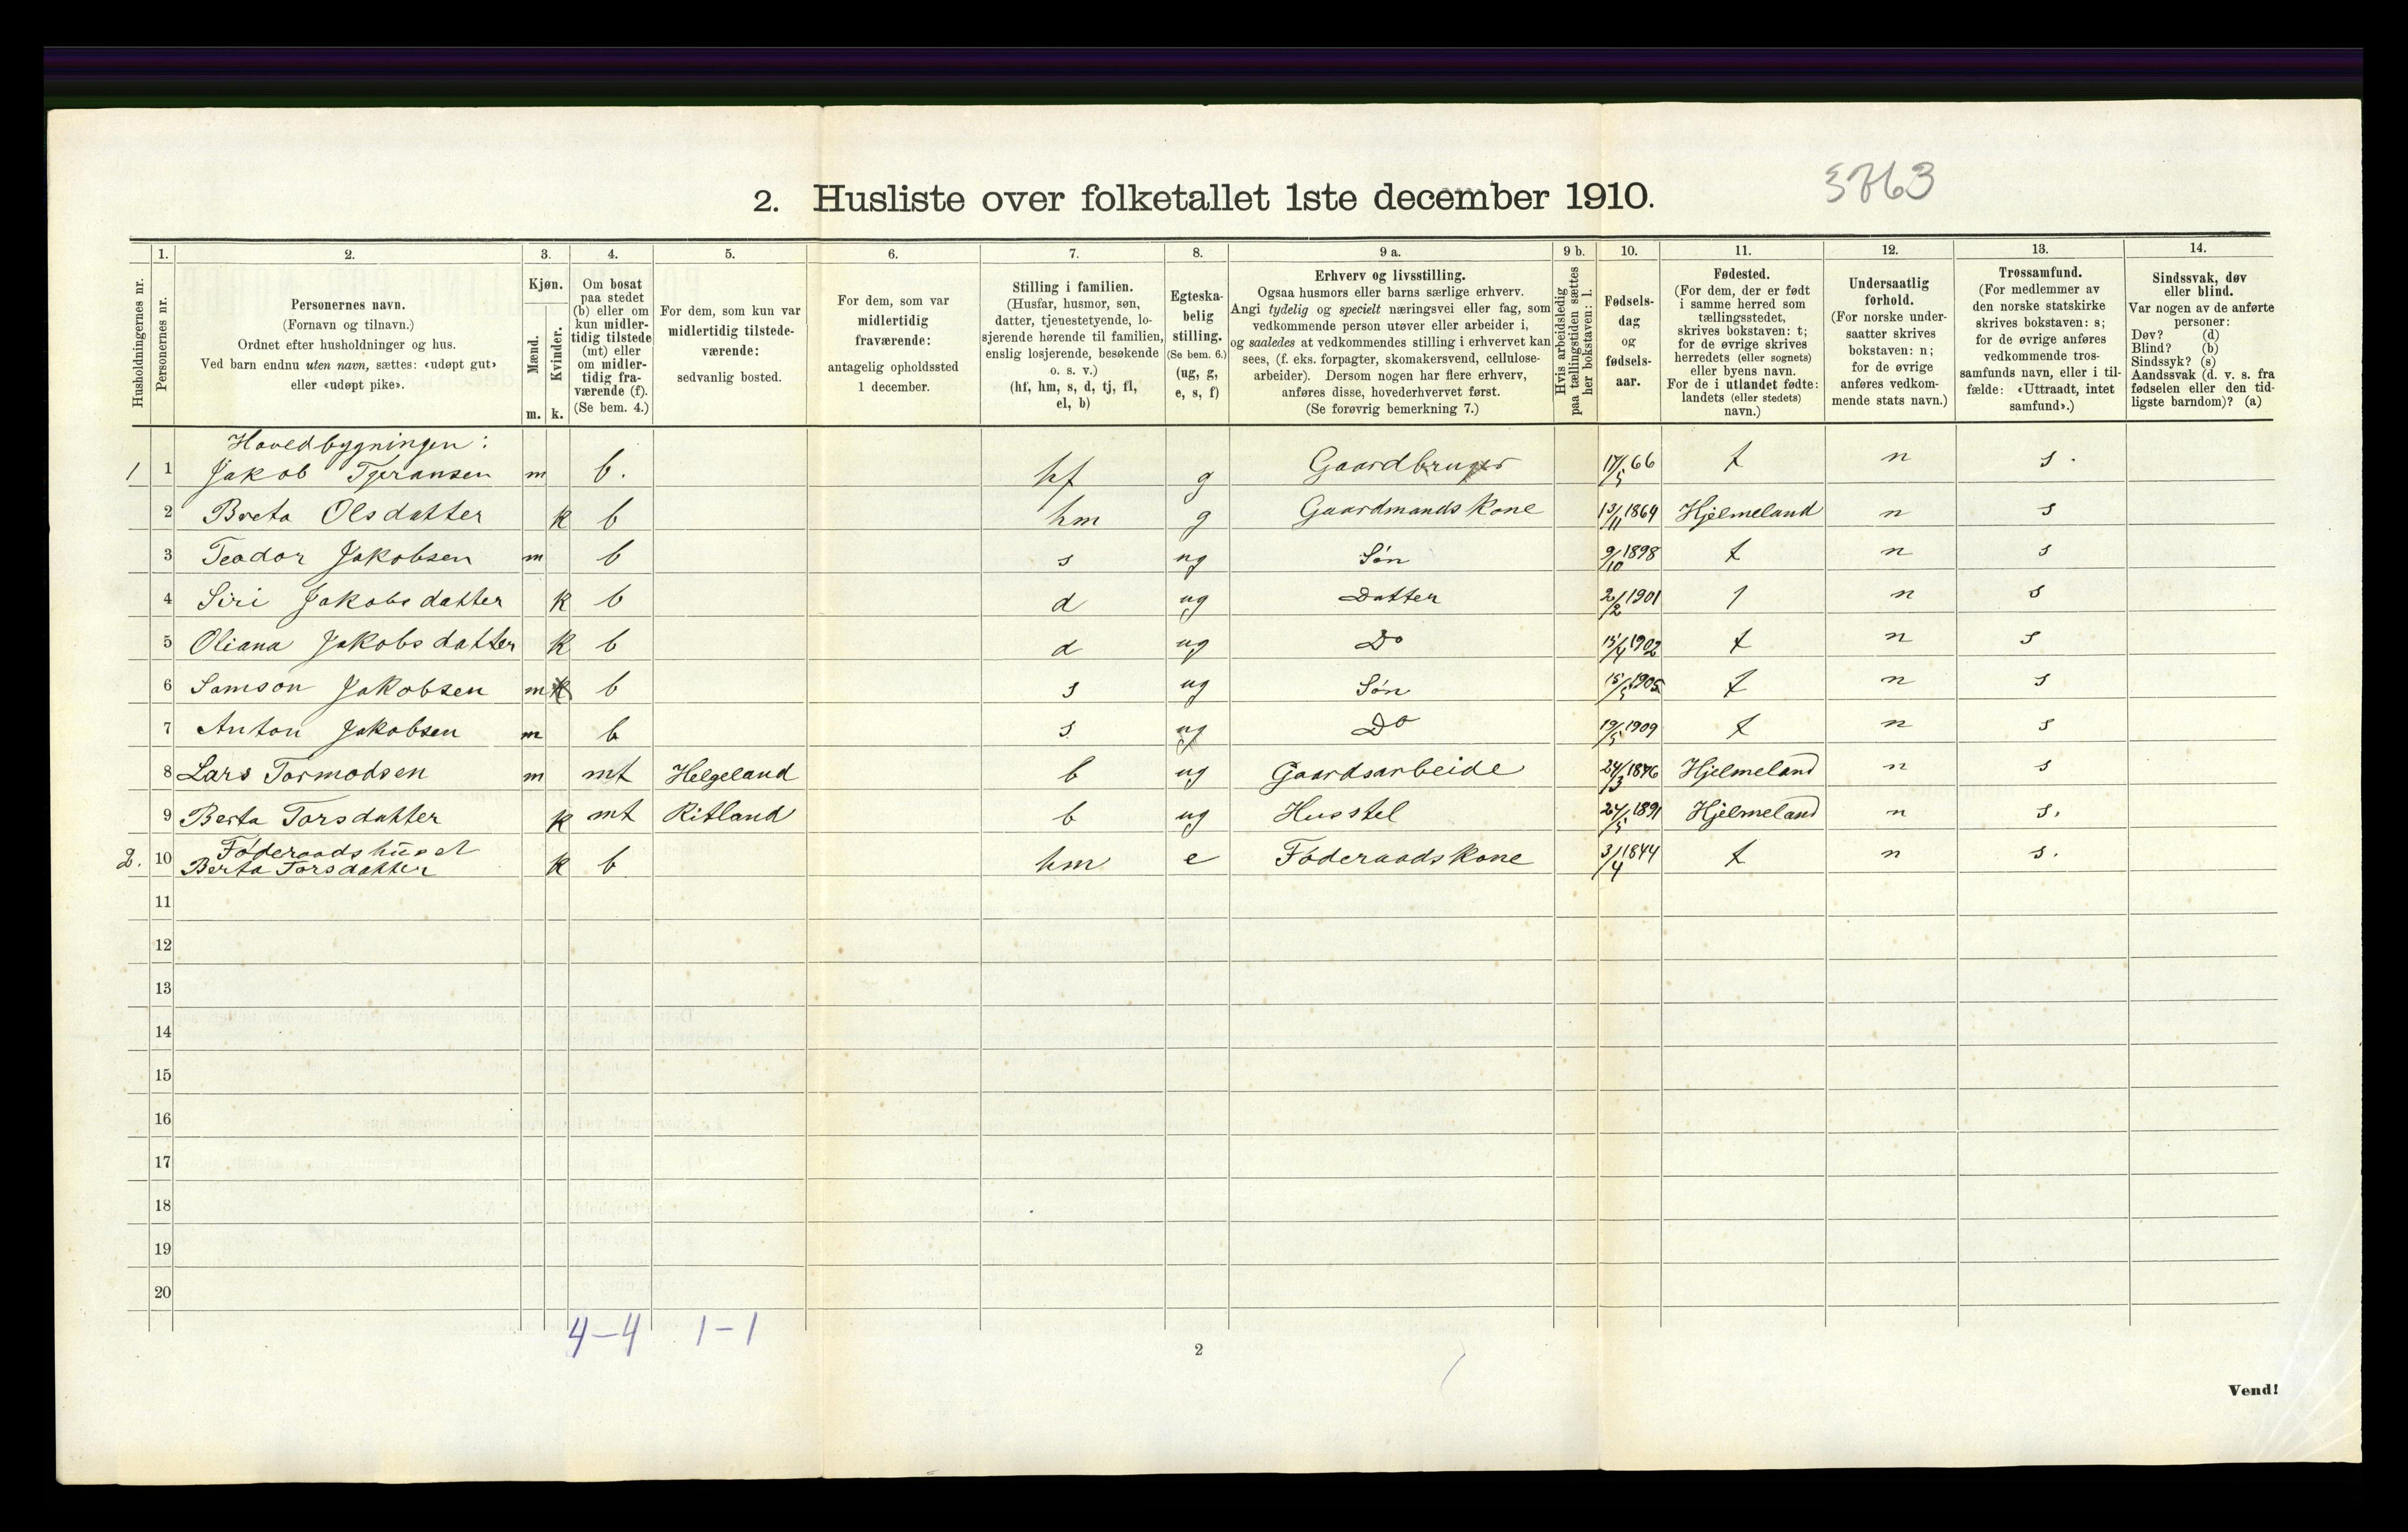 3763
2. Husliste over folketallet 1ste december 1910.
1. 2. 3. 4. 5. 6. 7. 8. 9 a. 9 b. 10. 11. 12. 13. 14.
Husholdningernes nr.
Personernes nr.
Personernes navn.
(Fornavn og tilnavn.)
Ordnet efter husholdninger og hus.
Ved barn endnu uten navn, sættes: «udøpt gut»
eller «udøpt pike».
Kjøn.
Mænd.
Kvinder.
m. k.
Om bosat
paa stedet
(b) eller om
kun midler-
tidig tilstede
(mt) eller
om midler-
tidig fra-
værende (f).
(Se bem. 4.)
For dem, som kun var
midlertidig tilstede-
værende:
sedvanlig bosted.
For dem, som var
midlertidig
fraværende:
antagelig opholdssted
1 december.
Stilling i familien.
(Husfar, husmor, søn,
datter, tjenestetyende, lo-
sjerende hørende til familien,
enslig losjerende, besøkende
o. s. v.)
(hf, hm, s, d, tj, fl,
el, b)
Egteska-
belig
stilling.
(Se bem. 6.)
(ug, g,
e, s, f)
Erhverv og livsstilling.
Ogsaa husmors eller barns særlige erhverv.
Angi tydelig og specielt næringsvei eller fag, som
vedkommende person utøver eller arbeider i,
og saaledes at vedkommendes stilling i erhvervet kan
sees, (f. eks. forpagter, skomakersvend, cellulose-
arbeider). Dersom nogen har flere erhverv,
anføres disse, hovederhvervet først.
(Se forøvrig bemerkning 7.)
Hvis arbeidsledig
paa tællingstiden sættes
her bokstaven: l.
Fødsels-
dag
og
fødsels-
aar.
Fødested.
(For dem, der er født
i samme herred som
tællingsstedet,
skrives bokstaven: t;
for de øvrige skrives
herredets (eller sognets)
eller byens navn.
For de i utlandet fødte:
landets (eller stedets)
navn.)
Undersaatlig
forhold.
(For norske under-
saatter skrives
bokstaven: n;
for de øvrige
anføres vedkom-
mende stats navn.)
Trossamfund.
(For medlemmer av
den norske statskirke
skrives bokstaven: s;
for de øvrige anføres
vedkommende tros-
samfunds navn, eller i til-
fælde: «Uttraadt, intet
samfund».)
Sindssvak, døv
eller blind.
Var nogen av de anførte
personer:
Døv? (d)
Blind? (b)
Sindssyk? (s)
Aandssvak (d. v. s. fra
fødselen eller den tid-
ligste barndom)? (a)
Hovedbygningen:
1 1 Jakob Tjeransen m b. hf g Gaardbruger 17/5 66 t n s.
2 Breta Olsdatter k b hm g Gaardmands Kone 13/11 1864 Hjelmeland n s
3 Teador Jakobsen m b s ug Søn 9/10 1898 t n s
4 Siri Jakobsdatter k b d ug Datter 2/2 1901 t n s
5 Oliana Jakobsdatter k b d ug Do 15/4 1902 t n s
6 Samson Jakobsen m b s ug Søn 15/5 1905 t n s
7 Anton Jakobsen m b s ug Do 19/5 1909 t n s
8 Lars Tormodsen m mt Helgeland b ug Gaardsarbeide 24/3 1876 Hjelmeland n s
9 Berta Torsdatter k mt Ritland b ug Husstel 24/5 1891 Hjelmeland n s.
Føderaadshuset
2. 10 Berta Torsdatter k b hm e Føderaads Kone 3/4 1844 t n s.
11
12
13
14
15
16
17
18
19
20
4-4 1-1
2
Vend!